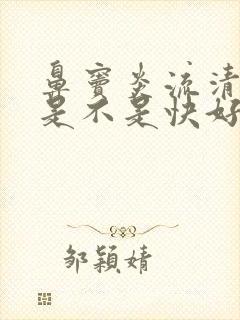 鼻窦炎流清
是不是快好
邹颖婧